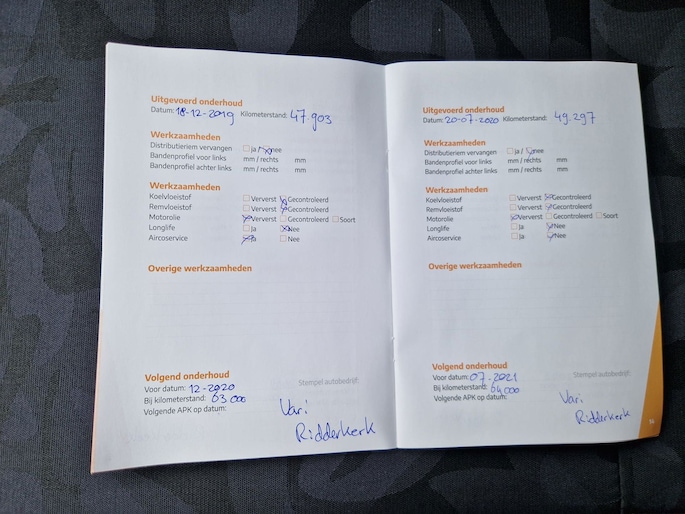 Uitgevoerd onderhoud
Datum: 18-12-2019 Kilometerstand: 47.903
Werkzaamheden
Distributieriem vervangen ja / nee
Bandenprofiel voor links mm / rechts mm
Bandenprofiel achter links mm / rechts mm
Werkzaamheden
Koelvloeistof Ververst Gecontroleerd
Remvloeistof Ververst Gecontroleerd
Motorolie Ververst Gecontroleerd Soort
Longlife Ja Nee
Aircoservice Ja Nee
Overige werkzaamheden
Volgend onderhoud
Stempel autobedrijf
Voor datum: 12-2020
Bij kilometerstand: 63 000
Volgende APK op datum:
Vari
Ridderkerk
Uitgevoerd onderhoud
Datum: 20-07-2020 Kilometerstand: 49.297
Werkzaamheden
Distributieriem vervangen ja / nee
Bandenprofiel voor links mm / rechts mm
Bandenprofiel achter links mm / rechts mm
Werkzaamheden
Koelvloeistof Ververst Gecontroleerd
Remvloeistof Ververst Gecontroleerd
Motorolie Ververst Gecontroleerd Soort
Longlife Ja Nee
Aircoservice Ja Nee
Overige werkzaamheden
Volgend onderhoud
Stempel autobedrijf
Voor datum: 07-2021
Bij kilometerstand: 64 000
Volgende APK op datum:
Vari
Ridderkerk